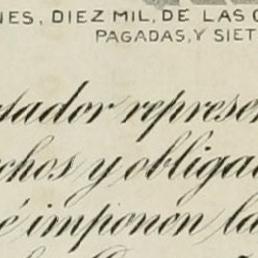 NES, DIEZ MIL, DE LAS C
PAGADAS, Y SIET
tador represen
chos y obligac
é imponen la